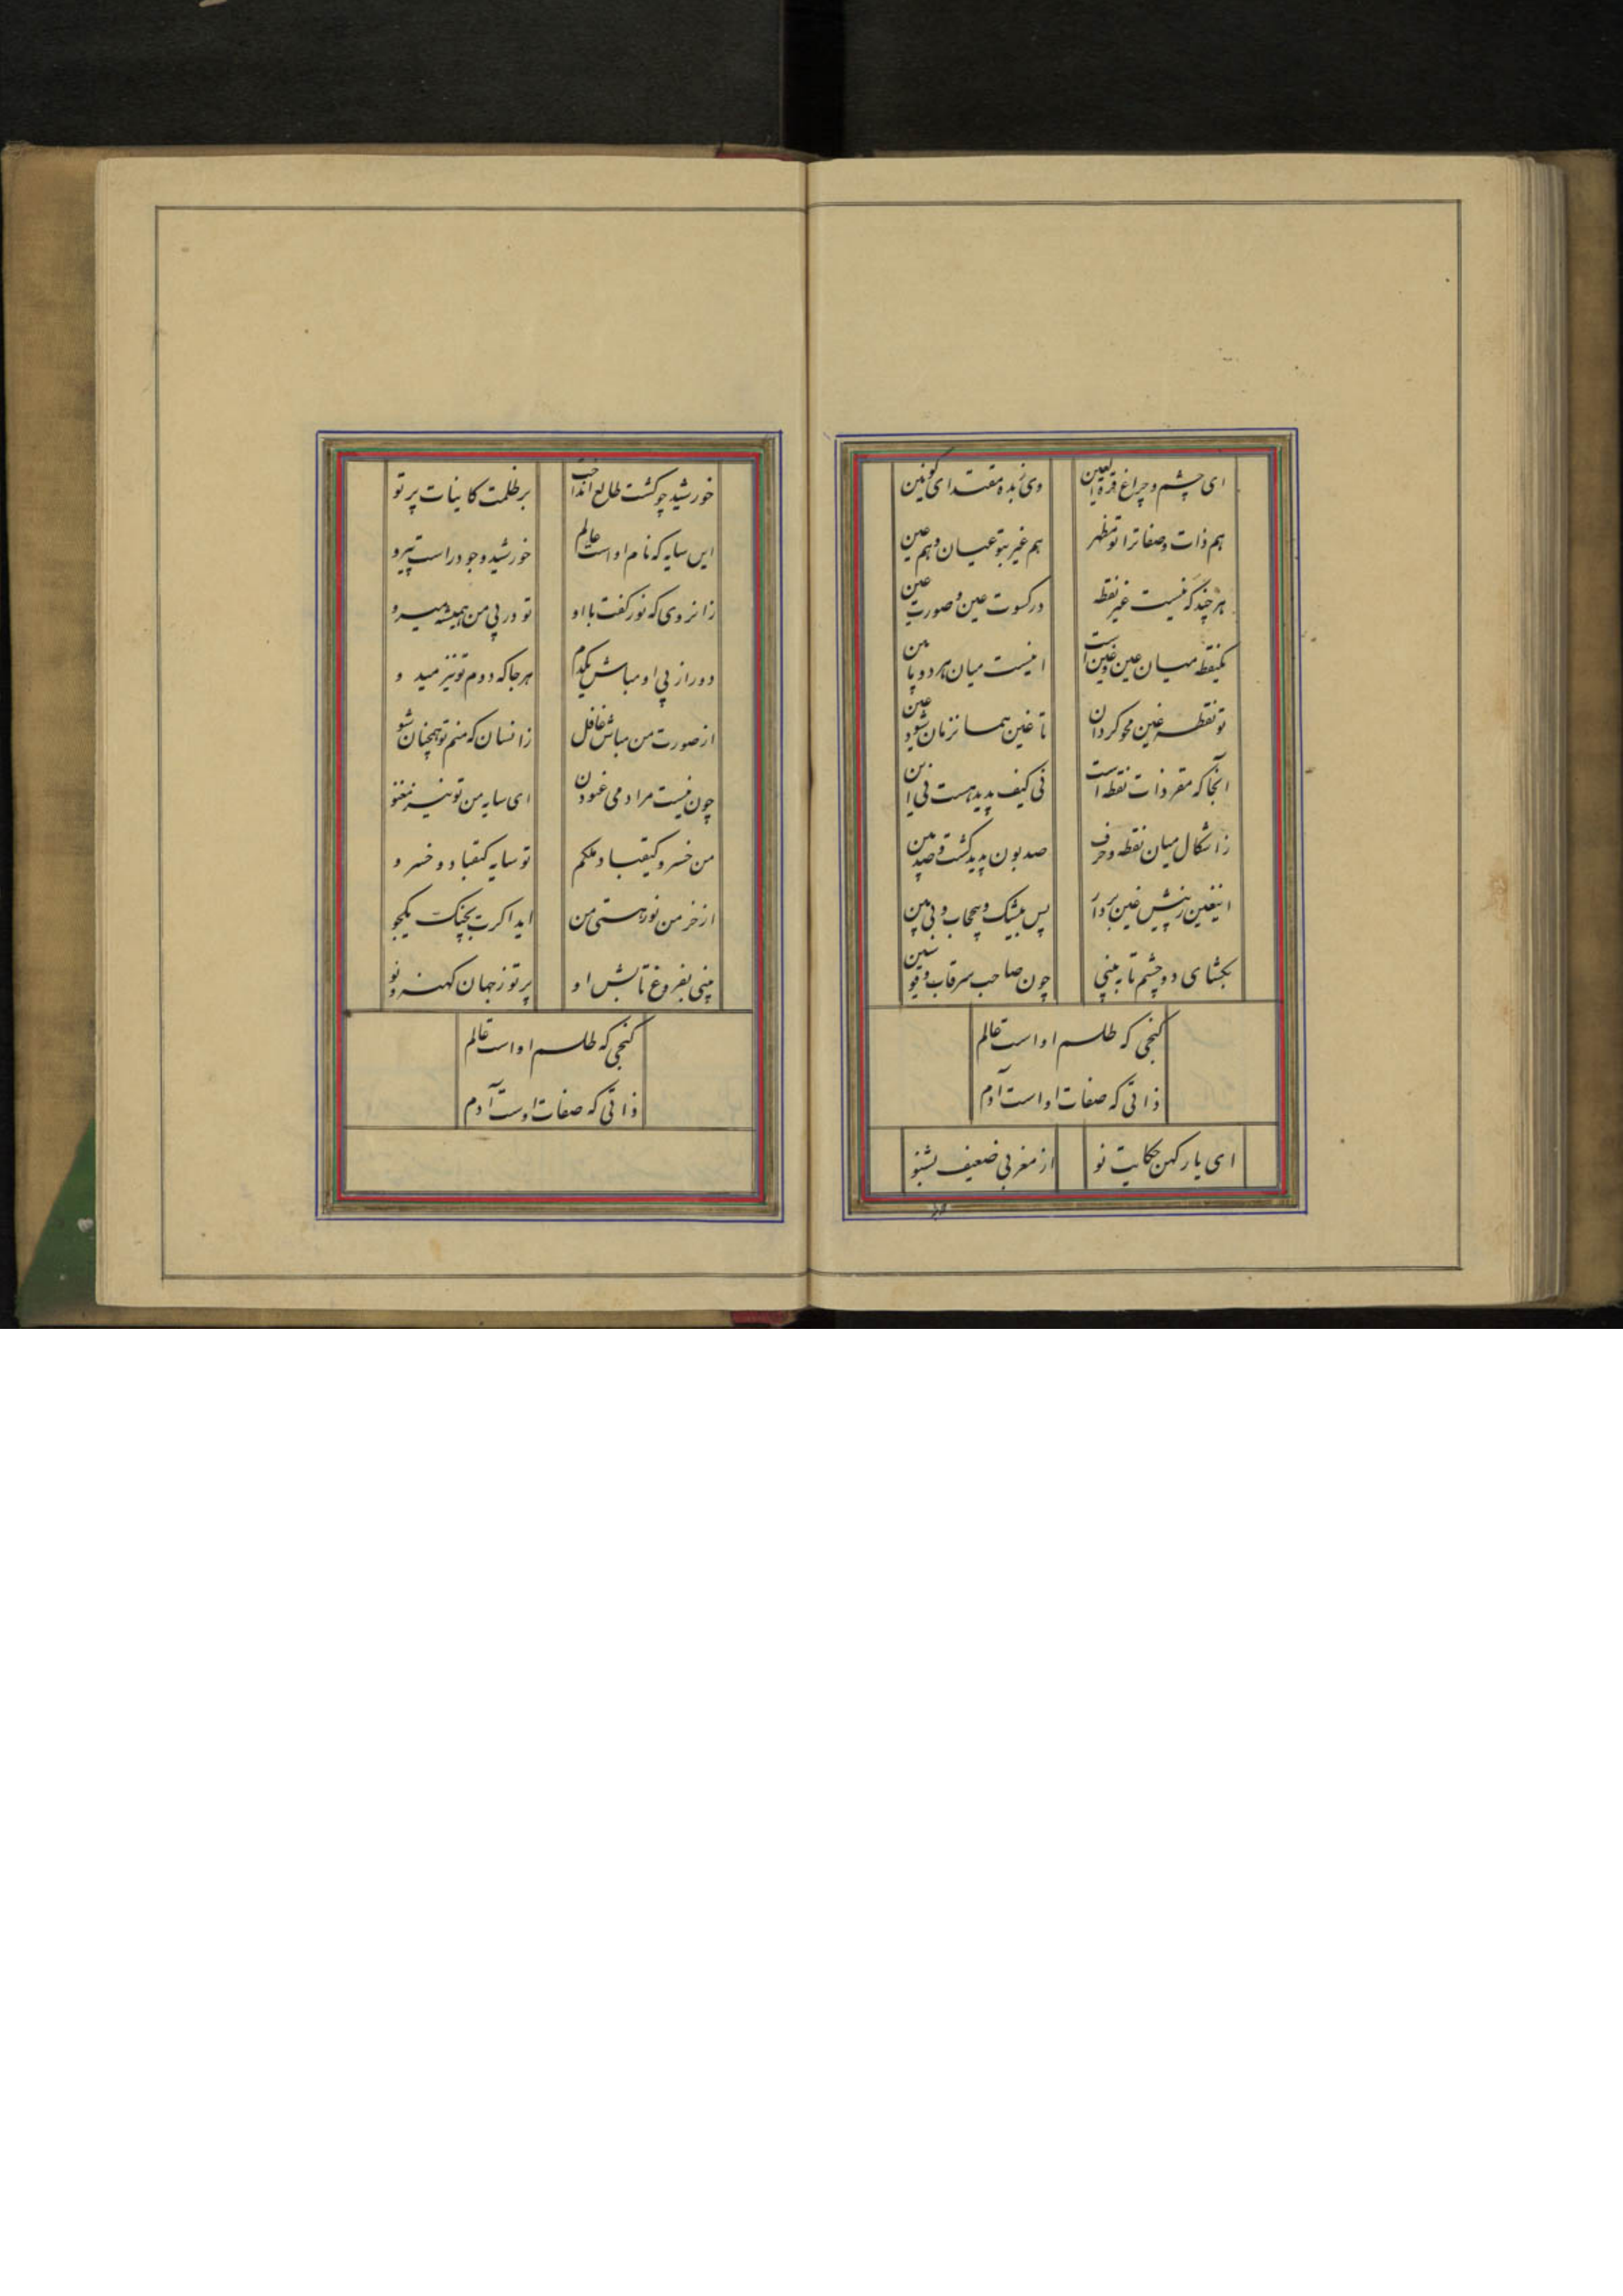 ای چشم و چراغ قرة العین وی زبده مقتدای کونین
هم ذات و صفا ترا تو مظهر هم غیر بتو عیان و هم عین
هر چند که نیست غیر نقطه در کسوت عین و صورت عین
یکنقطه میان عین و غین است اینست میان هر دو ما بین
تو نقطه غین محو کردان تا غین همانزمان شود عین
آنجا که مقر ذات نقطه است نی کیف پدید هست نی این
زاشکال میان نقطه و حرف صد بون پدید کشت و صد بین
اینغین ز پیش عین بردار پس بیشک و بیحجاب و بی مین
بکشای دو چشم تا به بینی چون صاحب سر قاب قوسین
کنجی که طلسم او است عالم
ذاتی که صفات او است آدم
ای یار کهن حکایت نو از مغربی ضعیف بشنو
خورشید چو کشت طالع انداخت بر ظلمت کاینات پرتو
این سایه که نام او است عالم خورشید وجود راست پیرو
زانروی که نور کفت با او تو در پی من همیشه میرو
دور از پی او مباش یکدم هر جا که دوم تو نیز میدو
از صورت من مباش غافل زانسان که منم تو همچنان شو
چون نیست مراد می غنودن ای سایه من تو نیز مغنو
من خسرو کیقباد ملکم تو سایه کیقباد و خسرو
از خرمن نور هستی من ایدا کرت بچنکت یکجو
بینی بفروغ تابش او پر تو ز جهان کهنه و نو
کنجی که طلسم او است عالم
ذاتی که صفات اوست آدم